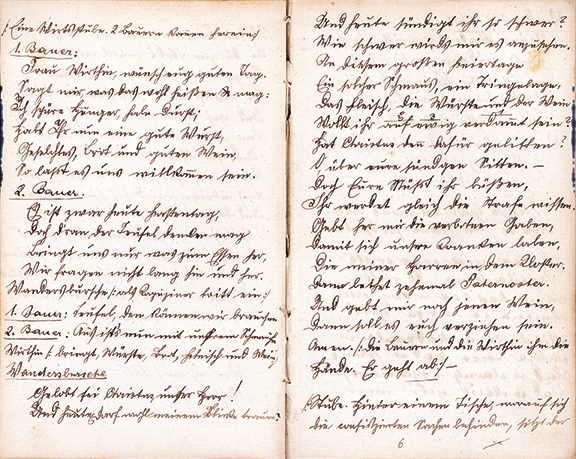 /: Eine Wirtsstube. 2 Bauern kommen herein :/
1. Bauer:
Frau Wirthin, wünsch eüch guten Tag.
Sagt mir, was das wohl heißen mag:
Ich spüre Hunger, habe Durst;
Habt Ihr nun eine gute Wurst,
Geselchtes, Brot und guten Wein,
So laßt es uns willkommen sein.
2. Bauer.
Es ist zwar heute Fasttag,
Doch dran der Teufel denken mag
Bringt uns nur was zum Essen her,
Wir fragen nicht lang hin und her.
Wanderbursche /: als Kapuziner tritt ein :/
1. Bauer: Teufel, den können wir brauchen
2. Bauer: Aus ists nun mit unserem Schmaus
Wirthin /: bringt, Würste, Brot, Fleisch und Wein
Wanderbursche
Gelobt sei Christus unser Herr!
Und heute darf wohl meinem Blicke trauen?
Und heute sündigt ihr so schwer?
Wie schwer würds mir es anzusehen.
An diesem großen Feiertage
Ein solcher Schmaus, ein Tringelage,
Das Fleisch, die Würste und der Wein
Wollt ihr auf ewig verdammt sein?
Hat Christus denn dafür gelitten?
O über eure sündgen Sitten. –
Doch Eüre Müßt ihr büßen,
Ihr werdet gleich die Strafe wissen:
Gebt her mir die verbotnen Gaben,
Damit sich unsre Kranken laben,
Die meiner Herren in dem Kloster.
Dann betet zehnmal Paternoster.
Und gebt mir noch jenen Wein,
Dann soll es euch verziehen sein.
Amen. /: Die Bauern und die Wirthin ihm die
Hände. Er geht ab :/ –
/: Stube. Hinter einem Tische, worauf sich
die confiszirten Sachen befinden, sitzt der
6